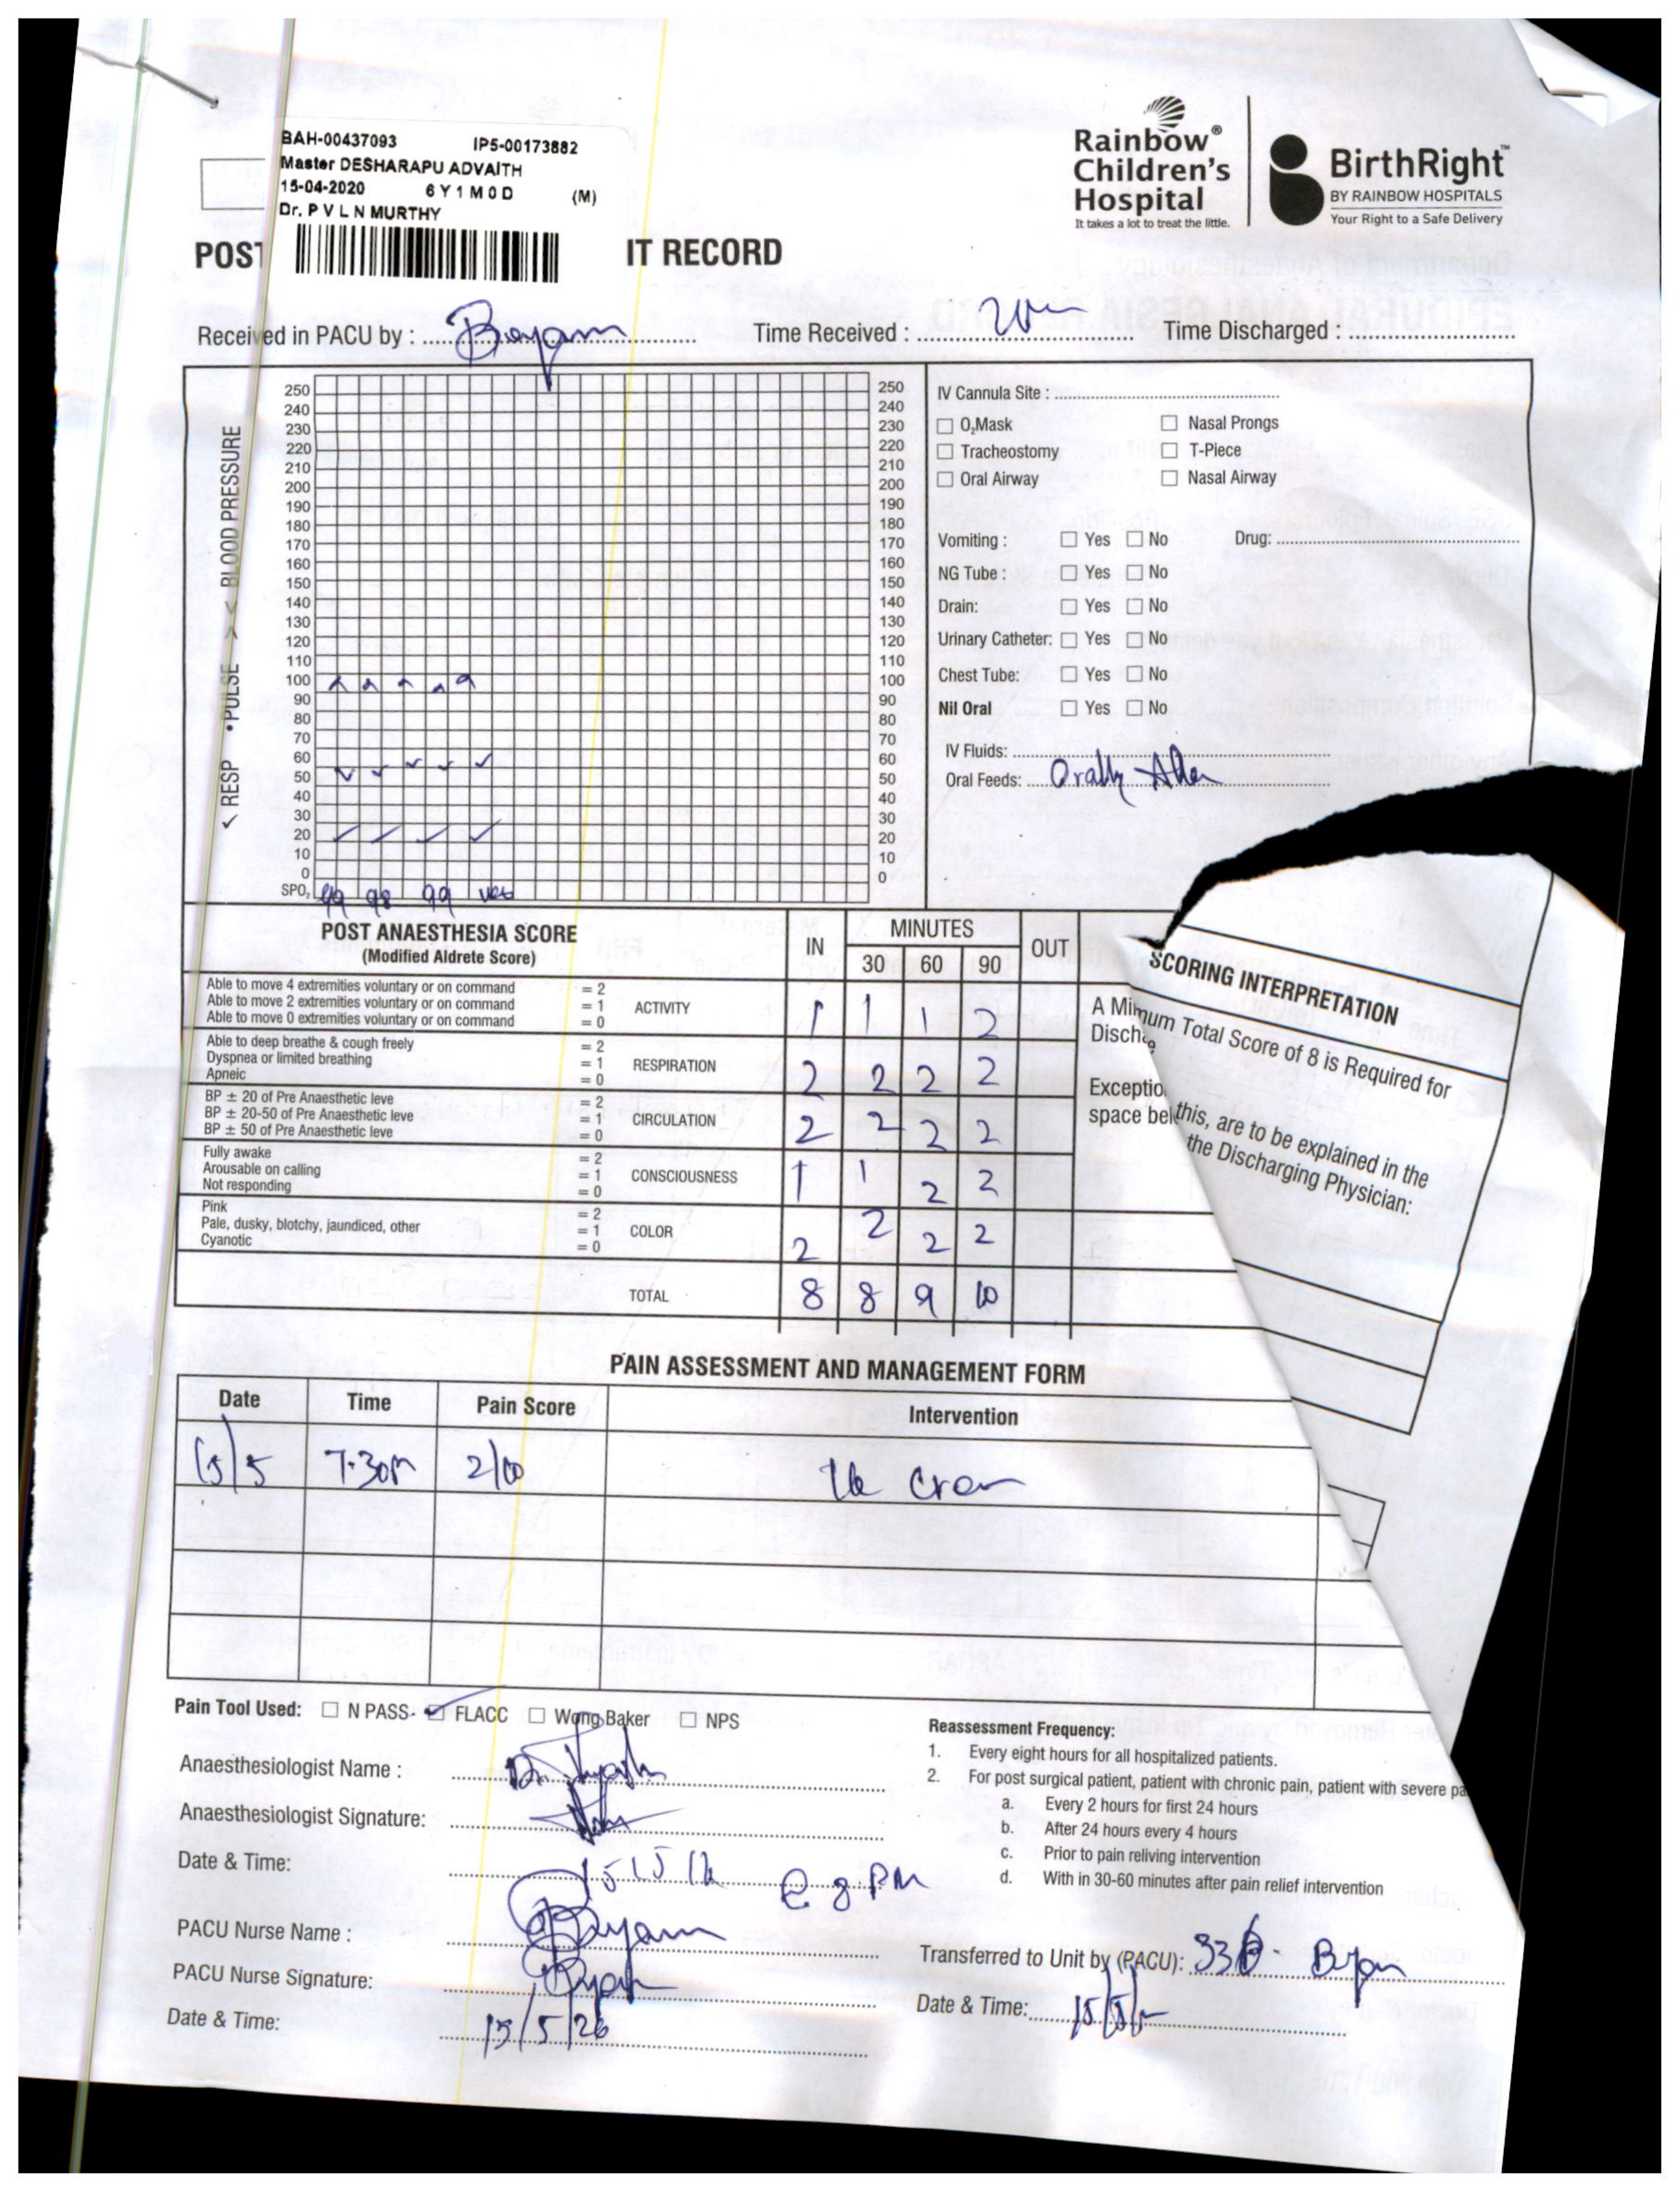 BAH-00437093 IP5-00173882
Master DESHARAPU ADVAITH
15-04-2020 6 Y 1 M 0 D (M)
Dr. P V L N MURTHY
Rainbow® Children's Hospital
It takes a lot to treat the little.
BirthRight™
BY RAINBOW HOSPITALS
Your Right to a Safe Delivery
POST IT RECORD
Received in PACU by : Time Received : Time Discharged :
RESP • PULSE > < BLOOD PRESSURE
250 250
240 240
230 230
220 220
210 210
200 200
190 190
180 180
170 170
160 160
150 150
140 140
130 130
120 120
110 110
100 100
90 90
80 80
70 70
60 60
50 50
40 40
30 30
20 20
10 10
0 0
SPO2 99 98 99
IV Cannula Site :
O2Mask Nasal Prongs
Tracheostomy T-Piece
Oral Airway Nasal Airway
Vomiting : Yes No Drug:
NG Tube : Yes No
Drain: Yes No
Urinary Catheter: Yes No
Chest Tube: Yes No
Nil Oral Yes No
IV Fluids:
Oral Feeds: Orally
POST ANAESTHESIA SCORE
(Modified Aldrete Score)
IN MINUTES OUT
30 60 90
Able to move 4 extremities voluntary or on command = 2
Able to move 2 extremities voluntary or on command = 1
Able to move 0 extremities voluntary or on command = 0
ACTIVITY 1 1 1 2
Able to deep breathe & cough freely = 2
Dyspnea or limited breathing = 1
Apneic = 0
RESPIRATION 2 2 2 2
BP ± 20 of Pre Anaesthetic leve = 2
BP ± 20-50 of Pre Anaesthetic leve = 1
BP ± 50 of Pre Anaesthetic leve = 0
CIRCULATION 2 2 2 2
Fully awake = 2
Arousable on calling = 1
Not responding = 0
CONSCIOUSNESS 1 1 2 2
Pink = 2
Pale, dusky, blotchy, jaundiced, other = 1
Cyanotic = 0
COLOR 2 2 2 2
TOTAL 8 8 9 10
SCORING INTERPRETATION
A Mi mum Total Score of 8 is Required for
Disch
Exceptio this, are to be explained in the
space bel the Discharging Physician:
PAIN ASSESSMENT AND MANAGEMENT FORM
Date Time Pain Score Intervention
15/5 7.30 2/10
Pain Tool Used: N PASS FLACC Wong Baker NPS
Anaesthesiologist Name : Dr.
Anaesthesiologist Signature:
Date & Time: @ 8 PM
PACU Nurse Name :
PACU Nurse Signature:
Date & Time: 15/5/26
Reassessment Frequency:
1. Every eight hours for all hospitalized patients.
2. For post surgical patient, patient with chronic pain, patient with severe pa
a. Every 2 hours for first 24 hours
b. After 24 hours every 4 hours
c. Prior to pain reliving intervention
d. With in 30-60 minutes after pain relief intervention
Transferred to Unit by (PACU):
Date & Time: